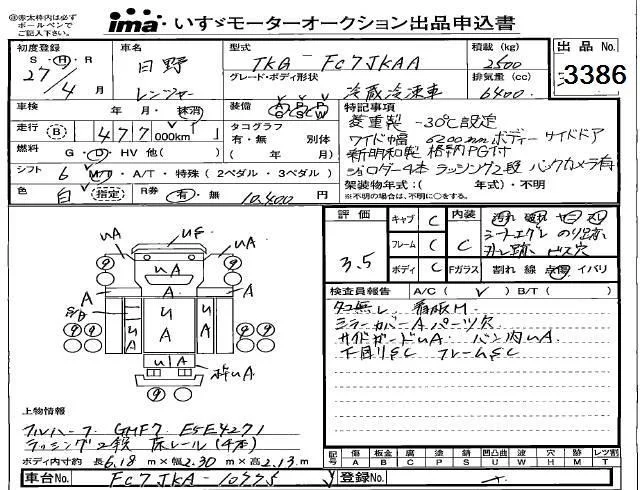 ㊟赤太枠内は必ず
ボールペンで
ご記入下さい。
ima いすゞモーターオークション出品申込書
初度登録 S・H・R 27/4月
車名 日野 レンジャー
型式 TKG - FC7JKAA
グレード・ボディ形状 冷蔵冷凍車
積載(kg) 2500
排気量(cc) 6400
出品No. 3386
車検 年・月・抹消
装備 A/C P/S P/W
特記事項
菱重製 -30℃設定
ワイド幅 6200mmボディー サイドドア
新明和製 格納PG付
ジョロダー4本 ラッシング2段 バックカメラ有
架装物年式:( 年式)・不明
※不明の場合は、不明に○をする。
走行 B 477,000km
タコグラフ 有・無 別体 ( 年/ 月)
燃料 G・D・HV 他( )
シフト 6 MT・A/T・特殊(2ペダル・3ペダル)
色 白 指定
R券 有・無 10,400円
評価 3.5
キャブ C
フレーム C
ボディ C
内装 C
シートエグレ のり跡
外し跡 ビス穴
Fガラス 割れ 線 点傷 イバリ
検査員報告 A/C( ) B/T( )
タコ無し 看板M
ミラーカバーA パーツ欠
サイドガードUA バン内UA
下回りSC フレームSC
UA
UE
UA
A
UA
A
A
UA
UA
UA
枠UA
上物情報
フルハーフ GHF7 E5E4271
ラッシング2段 床レール(4本)
ボディ内寸約 長6.18m×幅2.30m×高2.13m
記号 傷A 板金B 腐C 塗P 錆S 凹凸曲U 波W 穴H 跡M レツ割T
車台No. FC7JKA-10775
登録No.